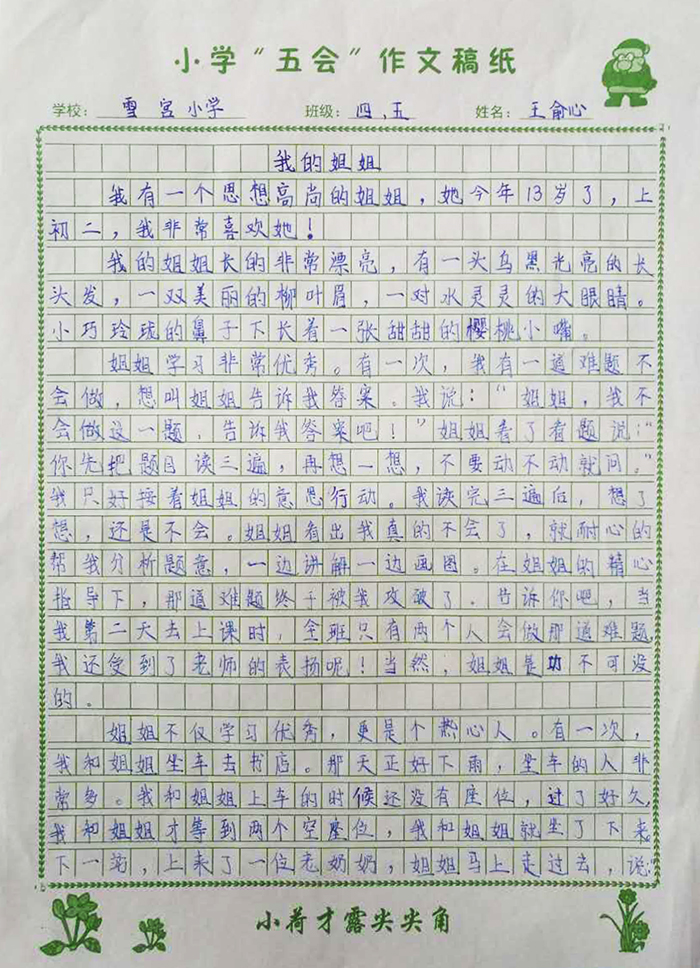 小学“五会”作文稿纸
学校：雪宫小学 班级：四、五 姓名：王俞心
我的姐姐
我有一个思想高尚的姐姐，她今年13岁了，上
初二，我非常喜欢她！
我的姐姐长的非常漂亮，有一头乌黑光亮的长
头发，一双美丽的柳叶眉，一对水灵灵的大眼睛。
小巧玲珑的鼻子下长着一张甜甜的樱桃小嘴。
姐姐学习非常优秀。有一次，我有一道难题不
会做，想叫姐姐告诉我答案。我说：“姐姐，我不
会做这一题，告诉我答案吧！”姐姐看了看题说：“
你先把题目读三遍，再想一想，不要动不动就问。”
我只好接着姐姐的意思行动。我读完三遍后，想了
想，还是不会。姐姐看出我真的不会了，就耐心的
帮我分析题意，一边讲解一边画图。在姐姐的精心
指导下，那道难题终于被我攻破了。告诉你吧，当
我第二天去上课时，全班只有两个人会做那道难题，
我还受到了老师的表扬呢！当然，姐姐是功不可没
的。
姐姐不仅学习优秀，更是个热心人。有一次，
我和姐姐坐车去书店。那天正好下雨，坐车的人非
常多。我和姐姐上车的时候还没有座位，过了好久，
我和姐姐才等到两个空座位，我和姐姐就坐了下来。
下一站，上来了一位老奶奶，姐姐马上走过去，说：
小荷才露尖尖角